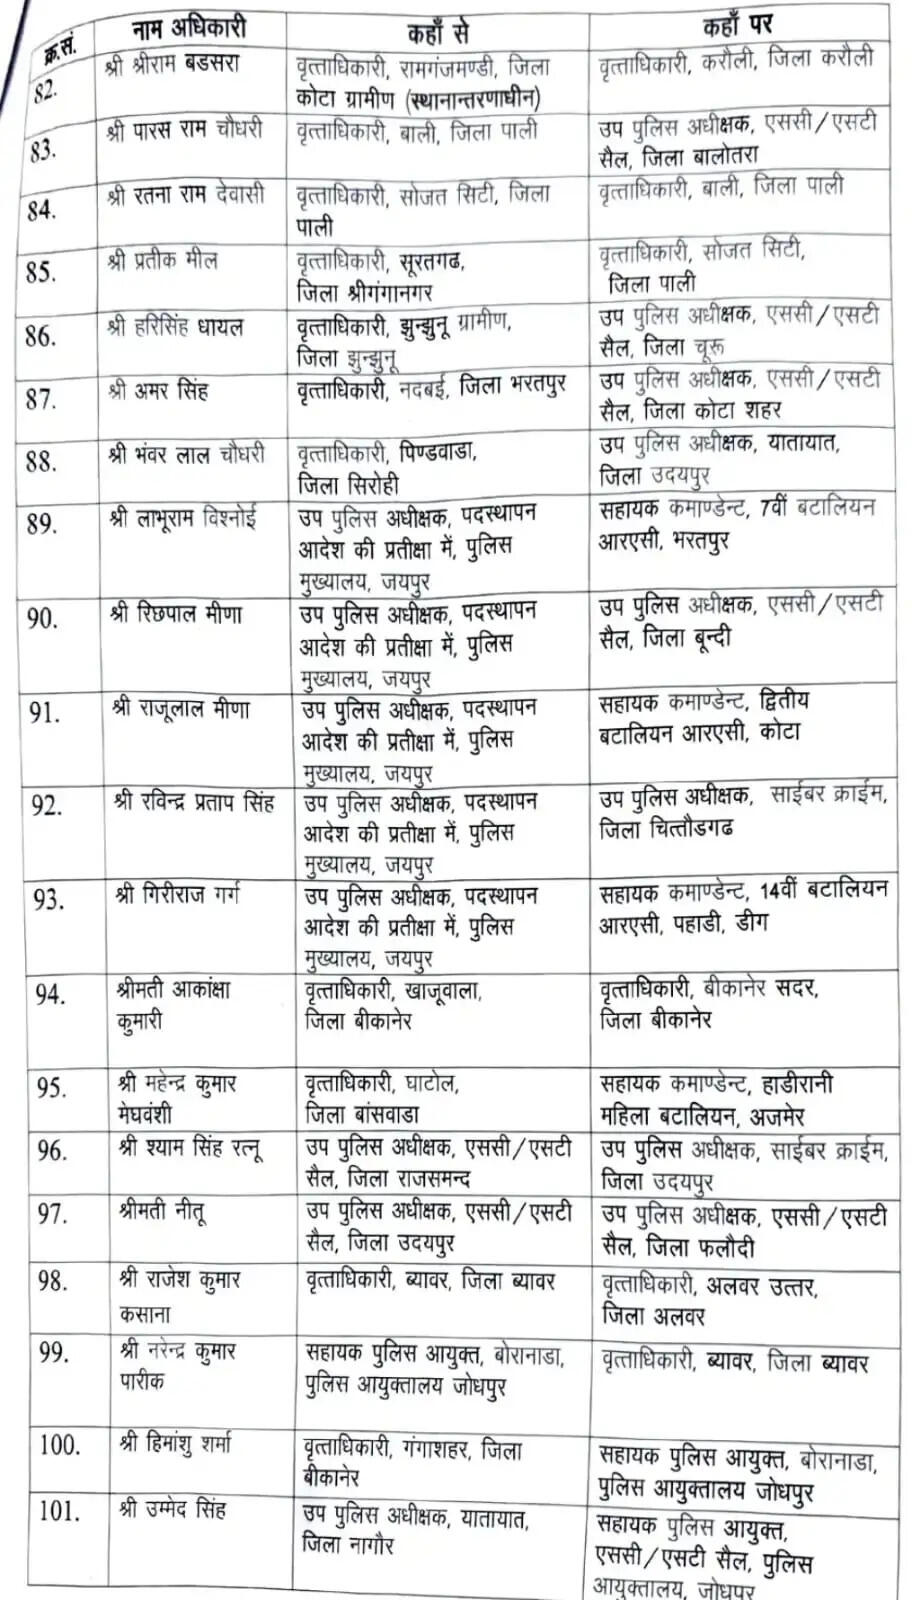 क्र.सं. नाम अधिकारी कहाँ से कहाँ पर
82. श्री श्रीराम बडसरा वृत्ताधिकारी, रामगंजमण्डी, जिला वृत्ताधिकारी, करौली, जिला करौली
कोटा ग्रामीण (स्थानान्तरणाधीन)
83. श्री पारस राम चौधरी वृत्ताधिकारी, बाली, जिला पाली उप पुलिस अधीक्षक, एससी/एसटी
सैल, जिला बालोतरा
84. श्री रतना राम देवासी वृत्ताधिकारी, सोजत सिटी, जिला वृत्ताधिकारी, बाली, जिला पाली
पाली
85. श्री प्रतीक मील वृत्ताधिकारी, सूरतगढ, वृत्ताधिकारी, सोजत सिटी,
जिला श्रीगंगानगर जिला पाली
86. श्री हरिसिंह धायल वृत्ताधिकारी, झुन्झुनू ग्रामीण, उप पुलिस अधीक्षक, एससी/एसटी
जिला झुन्झुनू सैल, जिला चूरू
87. श्री अमर सिंह वृत्ताधिकारी, नदबई, जिला भरतपुर उप पुलिस अधीक्षक, एससी/एसटी
सैल, जिला कोटा शहर
88. श्री भंवर लाल चौधरी वृत्ताधिकारी, पिण्डवाडा, उप पुलिस अधीक्षक, यातायात,
जिला सिरोही जिला उदयपुर
89. श्री लाभूराम विश्नोई उप पुलिस अधीक्षक, पदस्थापन सहायक कमाण्डेन्ट, 7वीं बटालियन
आदेश की प्रतीक्षा में, पुलिस आरएसी, भरतपुर
मुख्यालय, जयपुर
90. श्री रिछपाल मीणा उप पुलिस अधीक्षक, पदस्थापन उप पुलिस अधीक्षक, एससी/एसटी
आदेश की प्रतीक्षा में, पुलिस सैल, जिला बून्दी
मुख्यालय, जयपुर
91. श्री राजूलाल मीणा उप पुलिस अधीक्षक, पदस्थापन सहायक कमाण्डेन्ट, द्वितीय
आदेश की प्रतीक्षा में, पुलिस बटालियन आरएसी, कोटा
मुख्यालय, जयपुर
92. श्री रविन्द्र प्रताप सिंह उप पुलिस अधीक्षक, पदस्थापन उप पुलिस अधीक्षक, साईबर क्राईम,
आदेश की प्रतीक्षा में, पुलिस जिला चित्तौडगढ
मुख्यालय, जयपुर
93. श्री गिरीराज गर्ग उप पुलिस अधीक्षक, पदस्थापन सहायक कमाण्डेन्ट, 14वीं बटालियन
आदेश की प्रतीक्षा में, पुलिस आरएसी, पहाडी, डीग
मुख्यालय, जयपुर
94. श्रीमती आकांक्षा वृत्ताधिकारी, खाजूवाला, वृत्ताधिकारी, बीकानेर सदर,
कुमारी जिला बीकानेर जिला बीकानेर
95. श्री महेन्द्र कुमार वृत्ताधिकारी, घाटोल, सहायक कमाण्डेन्ट, हाडीरानी
मेघवंशी जिला बांसवाडा महिला बटालियन, अजमेर
96. श्री श्याम सिंह रत्नू उप पुलिस अधीक्षक, एससी/एसटी उप पुलिस अधीक्षक, साईबर क्राईम,
सैल, जिला राजसमन्द जिला उदयपुर
97. श्रीमती नीतू उप पुलिस अधीक्षक, एससी/एसटी उप पुलिस अधीक्षक, एससी/एसटी
सैल, जिला उदयपुर सैल, जिला फलौदी
98. श्री राजेश कुमार वृत्ताधिकारी, ब्यावर, जिला ब्यावर वृत्ताधिकारी, अलवर उत्तर,
कसाना जिला अलवर
99. श्री नरेन्द्र कुमार सहायक पुलिस आयुक्त, बोरानाडा, वृत्ताधिकारी, ब्यावर, जिला ब्यावर
पारीक पुलिस आयुक्तालय जोधपुर
100. श्री हिमांशु शर्मा वृत्ताधिकारी, गंगाशहर, जिला सहायक पुलिस आयुक्त, बोरानाडा,
बीकानेर पुलिस आयुक्तालय जोधपुर
101. श्री उम्मेद सिंह उप पुलिस अधीक्षक, यातायात, सहायक पुलिस आयुक्त,
जिला नागौर एससी/एसटी सैल, पुलिस
आयुक्तालय, जोधपुर